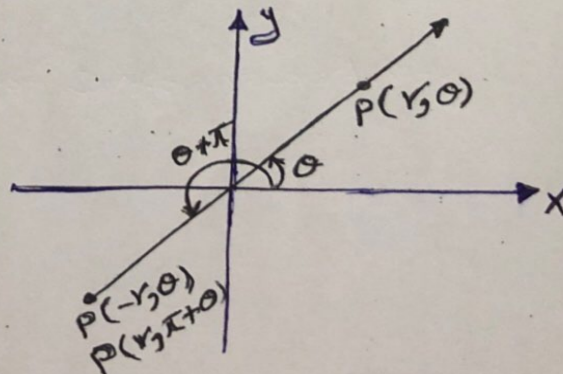 y
P(r,θ)
θ+π
θ
X
P(-r,θ)
P(r,π+θ)